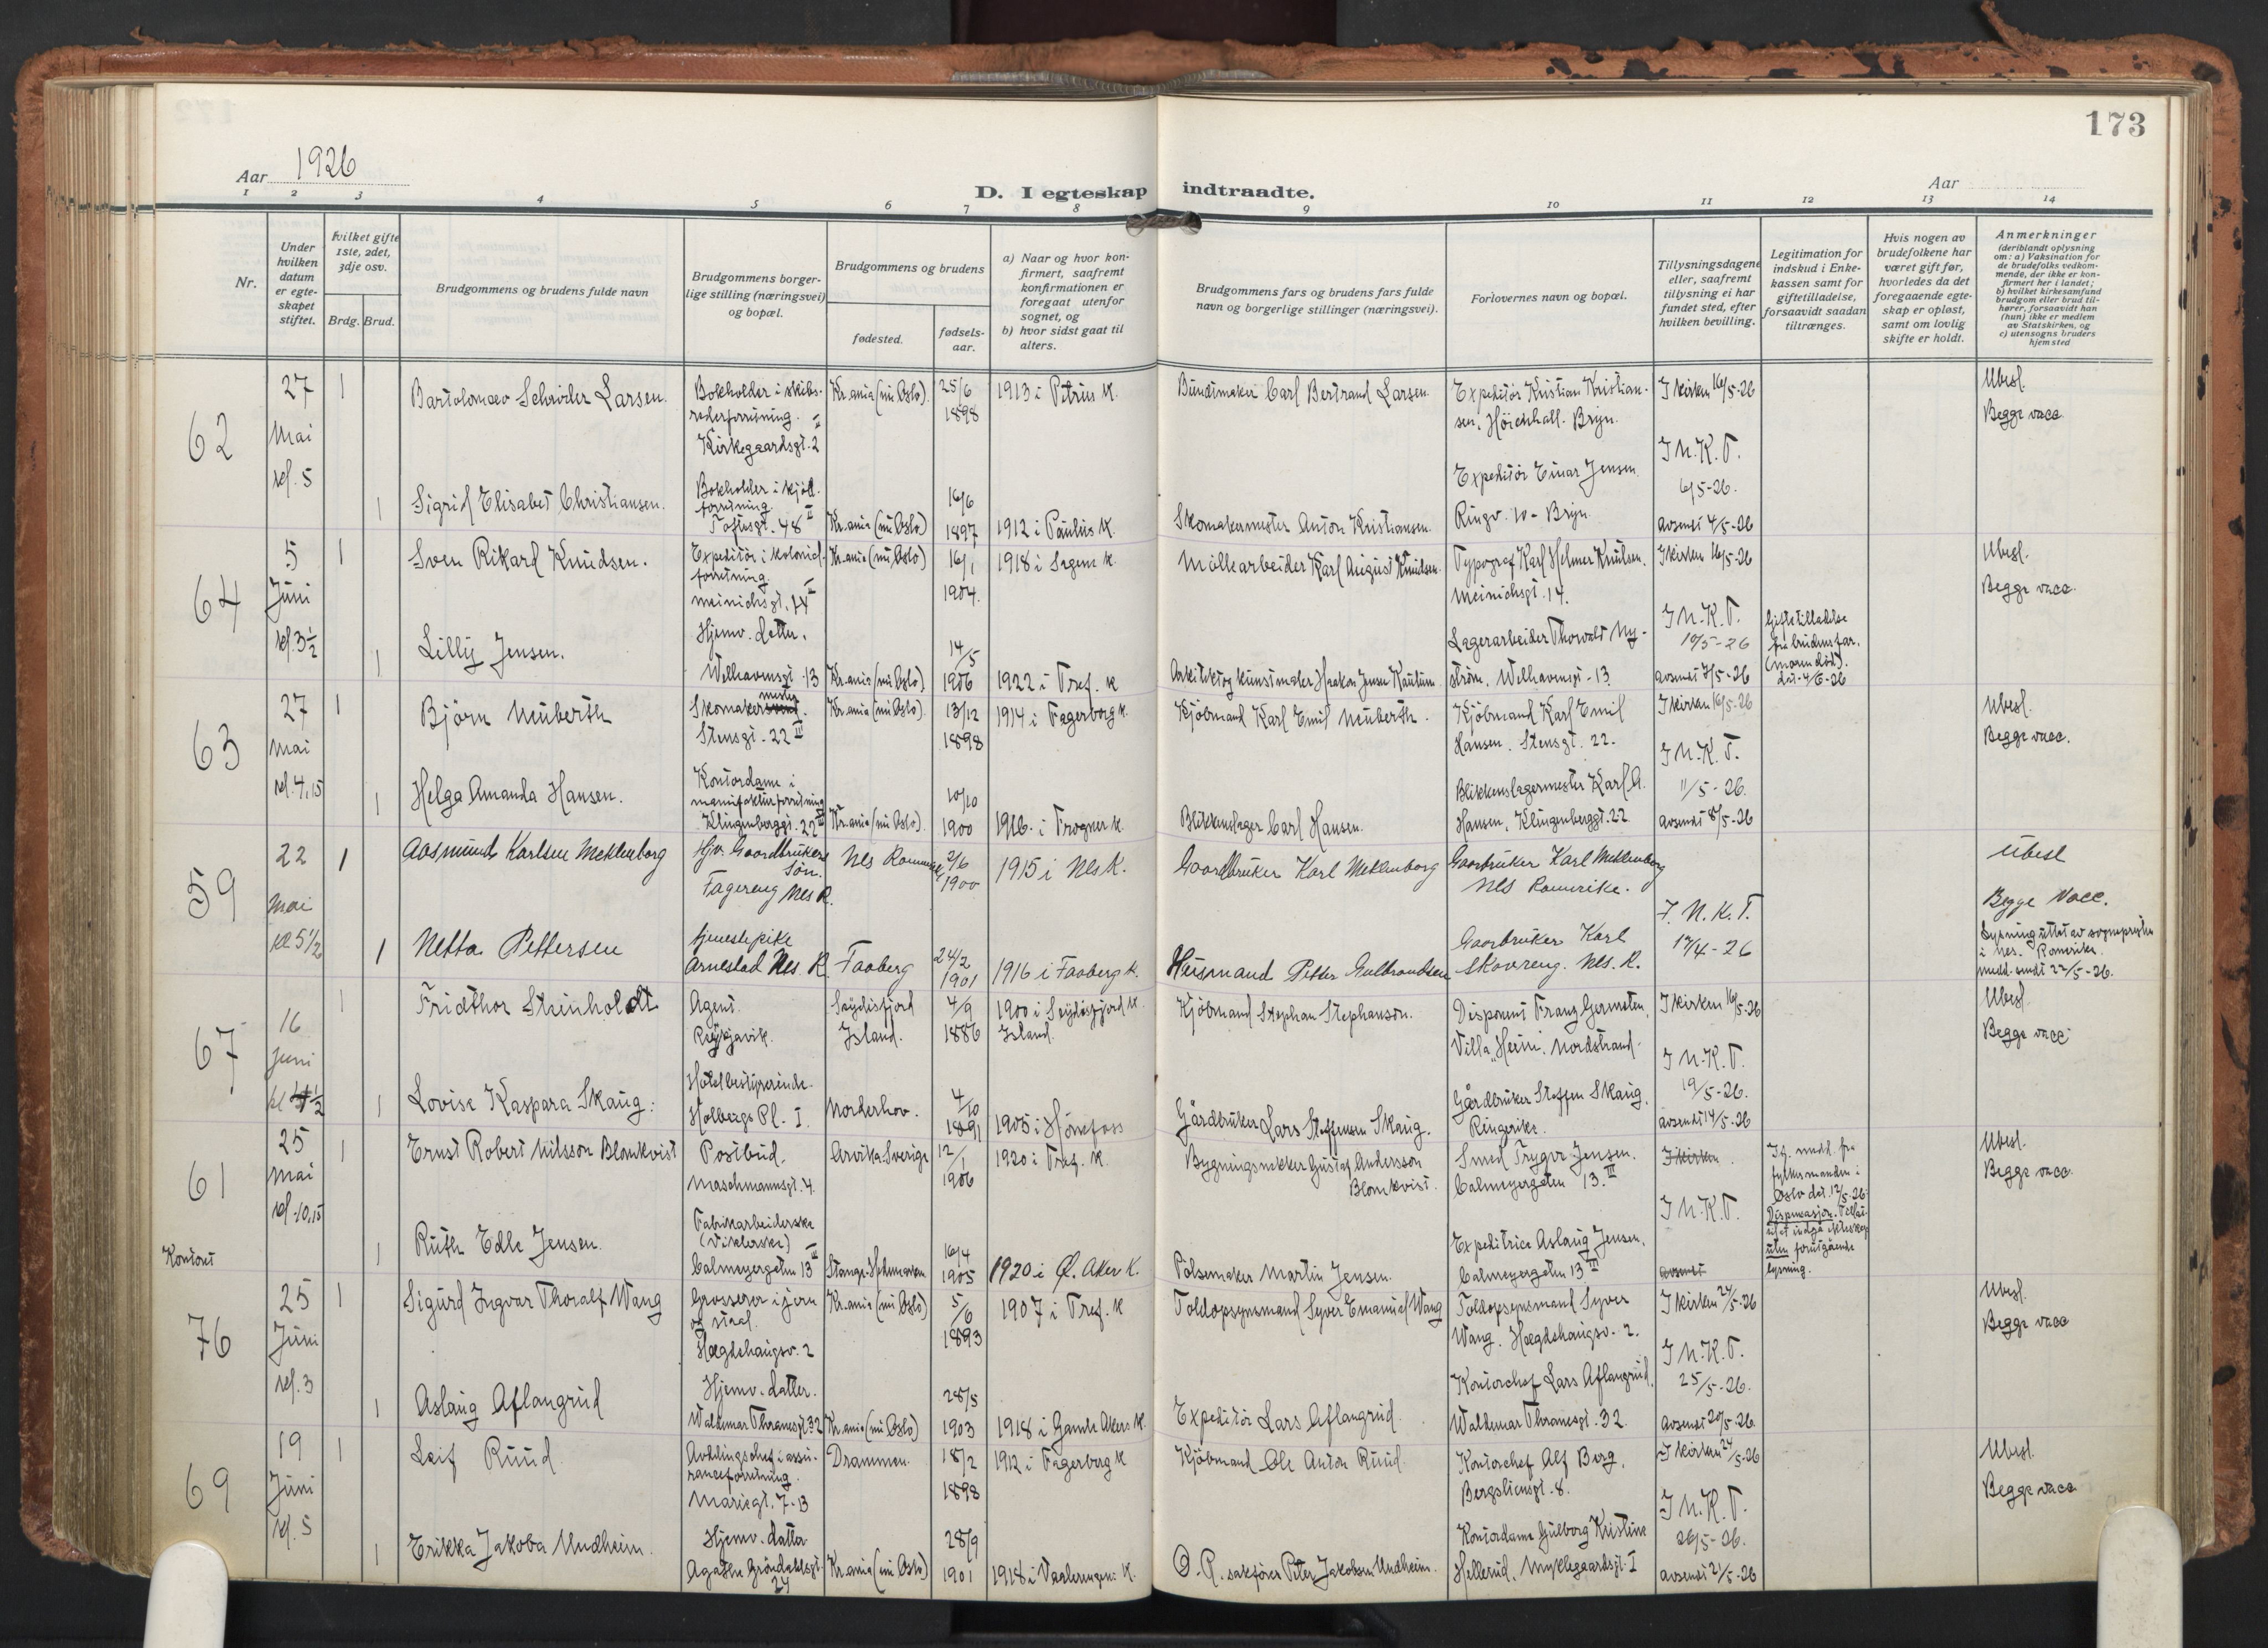 173
Aar 1926
D. I egteskap indtraadte.
Aar
1 2 3 4 5 6 7 8 9 10 11 12 13 14
Nr.
Under hvilken datum er egteskapet stiftet.
hvilket gifte 1ste, 2det, 3dje osv.
Brdg. Brud.
Brudgommens og brudens fulde navn
Brudgommens borgerlige stilling (næringsvei) og bopæl.
Brudgommens og brudens
fødested.
fødsels-aar.
a) Naar og hvor konfirmert, saafremt konfirmationen er foregaat utenfor sognet, og
b) hvor sidst gaat til alters.
Brudgommens fars og brudens fars fulde navn og borgerlige stillinger (næringsvei).
Forlovernes navn og bopæl.
Tillysningsdagene eller, saafremt tillysning ei har fundet sted, efter hvilken bevilling.
Legitimation for indskud i Enkekassen samt for giftetilladelse, forsaavidt saadan tiltrænges.
Hvis nogen av brudefolkene har været gift før, hvorledes da det foregaaende egteskap er opløst, samt om lovlig skifte er holdt.
Anmerkninger (deriblandt oplysning om: a) Vaksination for de brudefolks vedkommende, der ikke er konfirmert her i landet; b) hvilket kirkesamfund brudgom eller brud tilhører, forsaavidt han (hun) ikke er medlem av Statskirken, og c) utensogns bruders hjemsted
62
27 Mai kl. 5
1
Bartolomæo Schrøder Larsen.
Bokholder i skibsrederforretning.
Kirkegaardsgt. 2 II
Kr.ania (nu Oslo)
25/6 1898
1913 i Petrus K.
Buntmaker Carl Bertrand Larsen.
Expeditör Kristian Kristiansen. Höienhall. Bryn.
I kirken 16/5-26
Ubesl.
Begge vacc.
1
Sigrid Elisabet Christiansen.
Bokholder i kjött.forretning.
Toftesgt. 48 II
Kr.ania (nu Oslo)
16/6 1897
1912 i Paulus K.
Skomakermester Anton Kristiansen.
Expeditör Einar Jensen
Ringv. 10 - Bryn.
I N.K.T.
6/5-26.
avsendt 4/5-26
64
5 Juni kl. 3½
1
Sven Rikard Knudsen.
Expeditör i kolonialforretning.
Meinichsgt. 14 II
Kr.ania (nu Oslo)
16/1 1904.
1918 i Sagene K.
Möllearbeider Karl August Knudsen.
Typograf Karl Helmer Knudsen.
Meinichsgt. 14.
I kirken 16/5-26
Ubesl.
Begge vacc.
1
Lilly Jensen.
Hjemv. datter.
Welhavensgt. 13
Kr.ania (nu Oslo)
14/5 1906
1922 i Tref. K
Arkitekt og kunstmaler Haakon Jensen Kautum
Lagerarbeider Thorvald Nyström. Welhavensgt. 13.
I N.K.T.
10/5-26
avsendt 7/5-26
Giftetilladelse fra brudens far. (moren död). dat. 4/5-26
63
27 Mai kl. 4,15
1
Björn Neuberth
Skomakermester.
Stensgt. 22 III
Kr.ania (nu Oslo)
13/12 1898
1914 i Fagerborg K.
Kjöbmand Karl Emil Neuberth.
Kjöbmand Karl Emil Hansen. Stensgt. 22.
I kirken 16/5-26
Ubesl.
Begge vacc.
1
Helga Amanda Hansen.
Kontordame i manufakturforretning
Klingenberggt. 22 III
Kr.ania (nu Oslo)
10/10 1900
1916. i Frogner K.
Blikkenslager Carl Hansen.
Blikkenslagermester Karl A. Hansen. Klingenberggt. 22
I N.K.T.
11/5-26.
avsendt 8/5-26
59
22 Mai kl 5½
1
Aasmund Karlsen Meklenborg
Hjv. Gaardbrukers Sön.
Fagereng Nes R.
Nes Romerike
2/6 1900
1915 i Nes K.
Gaardbruker Karl Meklenborg
Gaarbruker Karl Meklenborg
Nes Romerike.
Ubesl
Begge Vacc.
1
Netta Pettersen
Tjenestepike
Arnestad Nes. R.
Faaberg
24/2 1901
1916 i Faaberg K.
Husmand Petter Gulbrandsen
Gaarbruker Karl Skovreng. Nes. R.
I N.K.T.
17/4-26
Lysning uttat av sognepresten i Nes. Romerike.
medd. sendt 22/5-26.
67
16 Juni kl ½
1
Fridthor Steinholdt
Agent.
Reykjavik.
Seydisfjord Island.
4/9 1886
1900 i Seydisfjord K. Island.
Kjöbmand Stephan Stephanson.
Disponent Franz Germeten,
Villa "Heim". Nordstrand.
I kirken 16/5-26
Ubesl.
Begge vacc.
1
Lovise Kaspara Skaug.
Hotelbestyrerinde.
Holbergs Pl. I.
Norderhov.
4/10 1891
1905 i Hönefoss
Gårdbruker Lars Steffensen Skaug.
Gårdbruker Steffen Skaug.
Ringerike.
I N.K.T.
19/5-26.
avsendt 14/5-26
61
25 Mai kl. 10,15
Kontoret
1
Ernst Robert Nilsson Blomkvist
Postbud.
Maschmannsgt. 4.
Arvika. Sverige
12/1 1906
1920 i Tref. K.
Bygningssnekker Gustaf Andersson Blomkvist.
Smed Trygve Jensen.
Calmeyergaten 13. III
I kirken.
Ubesl.
Begge vacc.
1
Ruth Edle Jensen.
Fabrikarbeiderske (Viklerske)
Calmeyergaten 13 III
Stange. Hedemarken
16/4 1905
1920 i Ø. Aker K.
Pölsemaker Martin Jensen.
Expeditrice Aslaug Jensen.
Calmeyergaten 13 III
I N.K.T.
avsendt
medd. fra fylkesmanden i Oslo dat. 12/5-26. Dispensasjon. uten forutgående lysning.
76
25 Juni kl. 3
1
Sigurd Ingvar Thoralf Wang
Grosserer i jern og staal.
Hegdehaugsv. 2
Kr.ania (nu Oslo)
5/6 1893
1907 i Tref. K
Toldopsynsmand Syver Emanuel Wang
Toldopsynsmand Syver Wang. Hegdehaugsv. 2.
I kirken 24/5-26
Ubesl.
Begge vacc
1
Aslaug Aflangrud
Hjemv. datter.
Waldemar Thranesgt. 32
Kr.ania (nu Oslo)
28/5 1903
1918 i Gamle Akers K.
Expeditör Lars Aflangrud.
Kontorchef Lars Aflangrud.
Waldemar Thranesgt. 32.
I N.K.T.
25/5-26.
avsendt 20/5-26.
69
19 Juni kl. 5
1
Leif Ruud.
Avdelingschef i assuranceforretning.
Mariegt. 7-B
Drammen.
18/2 1898
1912 i Fagerborg K
Kjöbmand Ole Anton Ruud.
Kontorchef Alf Berg.
Bergsliensgt. 8.
I kirken 24/5-26
Ubesl.
Begge vacc
1
Erikka Jakoba Undheim.
Hjemv. datter
Agathe Gröndahlsgt. 24
Kr.ania (nu Oslo)
28/9 1901
1918 i Vaalerengen K.
O.R. sakförer Peter Jakobsen Undheim.
Kontordame Gulborg Kristine Hellerud. Myklegaardsgt. I
I N.K.T.
26/5-26.
avsendt 21/5-26